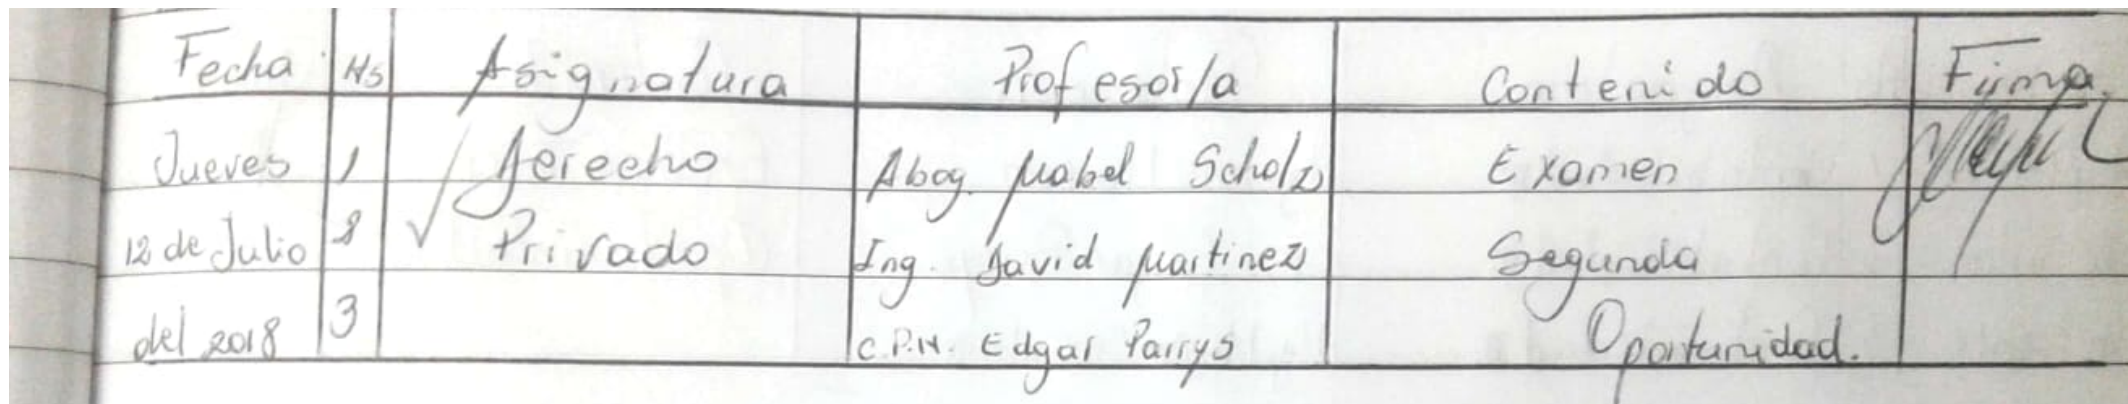 Fecha Hs Asignatura Profesor/a Contenido Firma
Jueves 1 Derecho Abog. Mabel Scholz Examen
12 de Julio 2 Privado Ing. David Martinez Segunda
del 2018 3 C.P.N. Edgar Parrys Oportunidad.